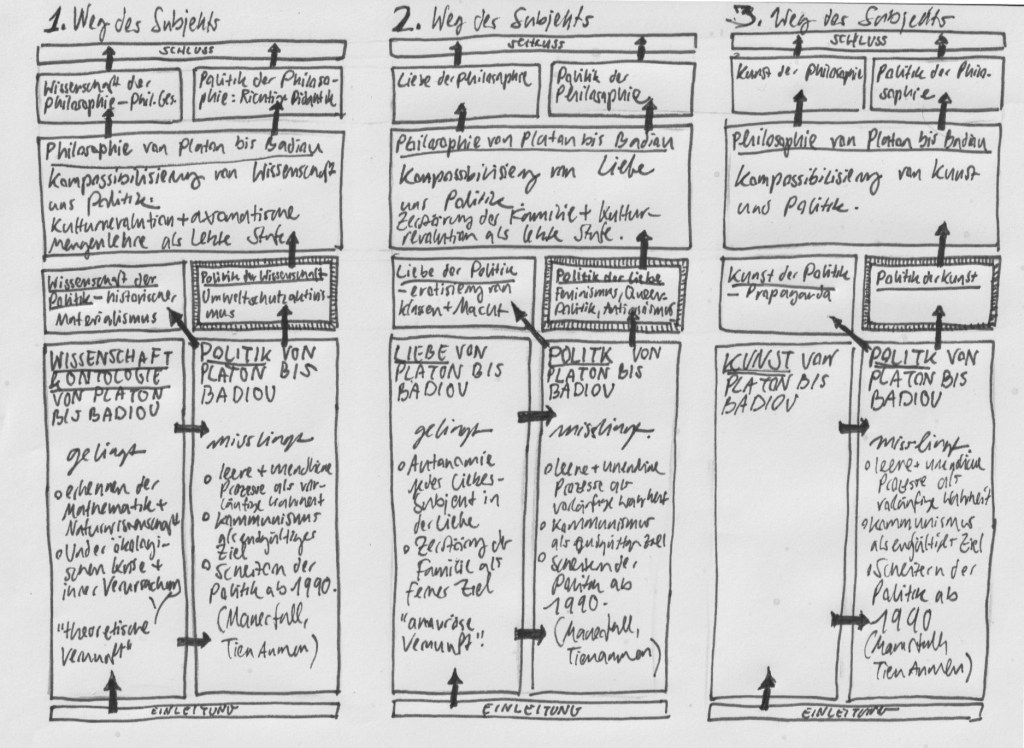 1. Weg des Subjekts
SCHLUSS
Wissenschaft der
Philosophie – Phil. Ges.
Politik der Philoso-
phie: Richtige Didaktik
Philosophie von Platon bis Badiou
Kompossibilisierung von Wissenschaft
und Politik.
Kulturrevolution + axiomatische
Mengenlehre als letzte Stufe.
Wissenschaft der
Politik – historischer
Materialismus
Politik der Wissenschaft
Umweltschutzaktivis-
mus
WISSENSCHAFT
ONTOLOGIE
VON PLATON
BIS BADIOU
gelingt
erkennen der
Mathematik +
Naturwissenschaft
Und der ökologi-
schen Krise +
ihrer Verursachung
"theoretische
Vernunft"
POLITIK VON
PLATON BIS
BADIOU
misslingt
leere + unendliche
Prozesse als vor-
läufige Wahrheit
Kommunismus
als endgültiges
Ziel
Scheitern der
Politik ab 1990.
(Mauerfall,
Tien Anmen)
EINLEITUNG
2. Weg des Subjekts
SCHLUSS
Liebe der Philosophie
Politik der
Philosophie
Philosophie von Platon bis Badiou
Kompossibilisierung von Liebe
und Politik.
Zerstörung der Familie + Kultur-
revolution als letzte Stufe.
Liebe der Politik
– erotisierung von
Klassen + Macht
Politik der Liebe
Feminismus, Queer-
Politik,
LIEBE VON
PLATON BIS
BADIOU
gelingt
Autonomie
jedes Liebes-
subjekt in
der Liebe
Zerstörung der
Familie als
ferner Ziel
"amouröse
Vernunft".
POLITK VON
PLATON BIS
BADIOU
misslingt.
leere + unendliche
Prozesse als
vorläufige Wahrheit
Kommunismus
als endgültiges Ziel
Scheitern der
Politik ab
1990.
(Mauerfall,
Tienanmen)
EINLEITUNG
3. Weg des Subjekts
SCHLUSS
Kunst der Philosophie
Politik der Philo-
sophie
Philosophie von Platon bis Badiou
Kompossibilisierung von Kunst
und Politik.
Kunst der Politik
– Propaganda
Politik der Kunst
KUNST VON
PLATON BIS
BADIOU
POLITK VON
PLATON BIS
BADIOU
misslingt.
leere + unendliche
Prozesse als
vorläufige Wahrheit
Kommunismus
als endgültiges Ziel
Scheitern der
Politik ab
1990
(Mauerfall,
Tien Anmen)
EINLEITUNG